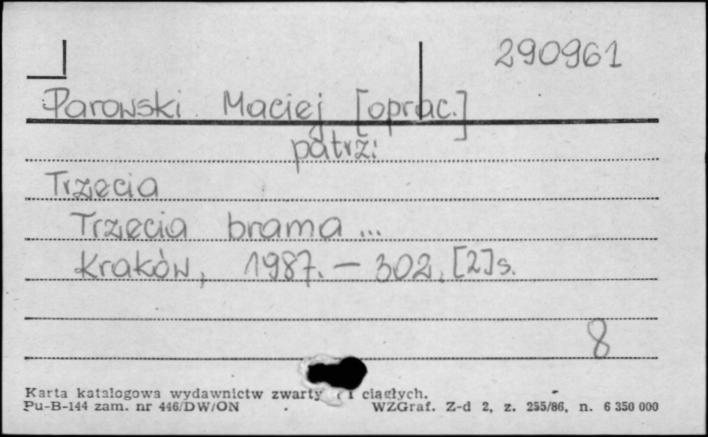 290961
Parowski Maciej [oprac.]
patrz:
Trzecia
Trzecia brama...
Kraków, 1987. – 302, [2] s.
8
Karta katalogowa wydawnictw zwarty i ciągłych.
Pu-B-144 zam. nr 446/DW/ON WZGraf. Z-d 2, z. 255/86, n. 6 350 000